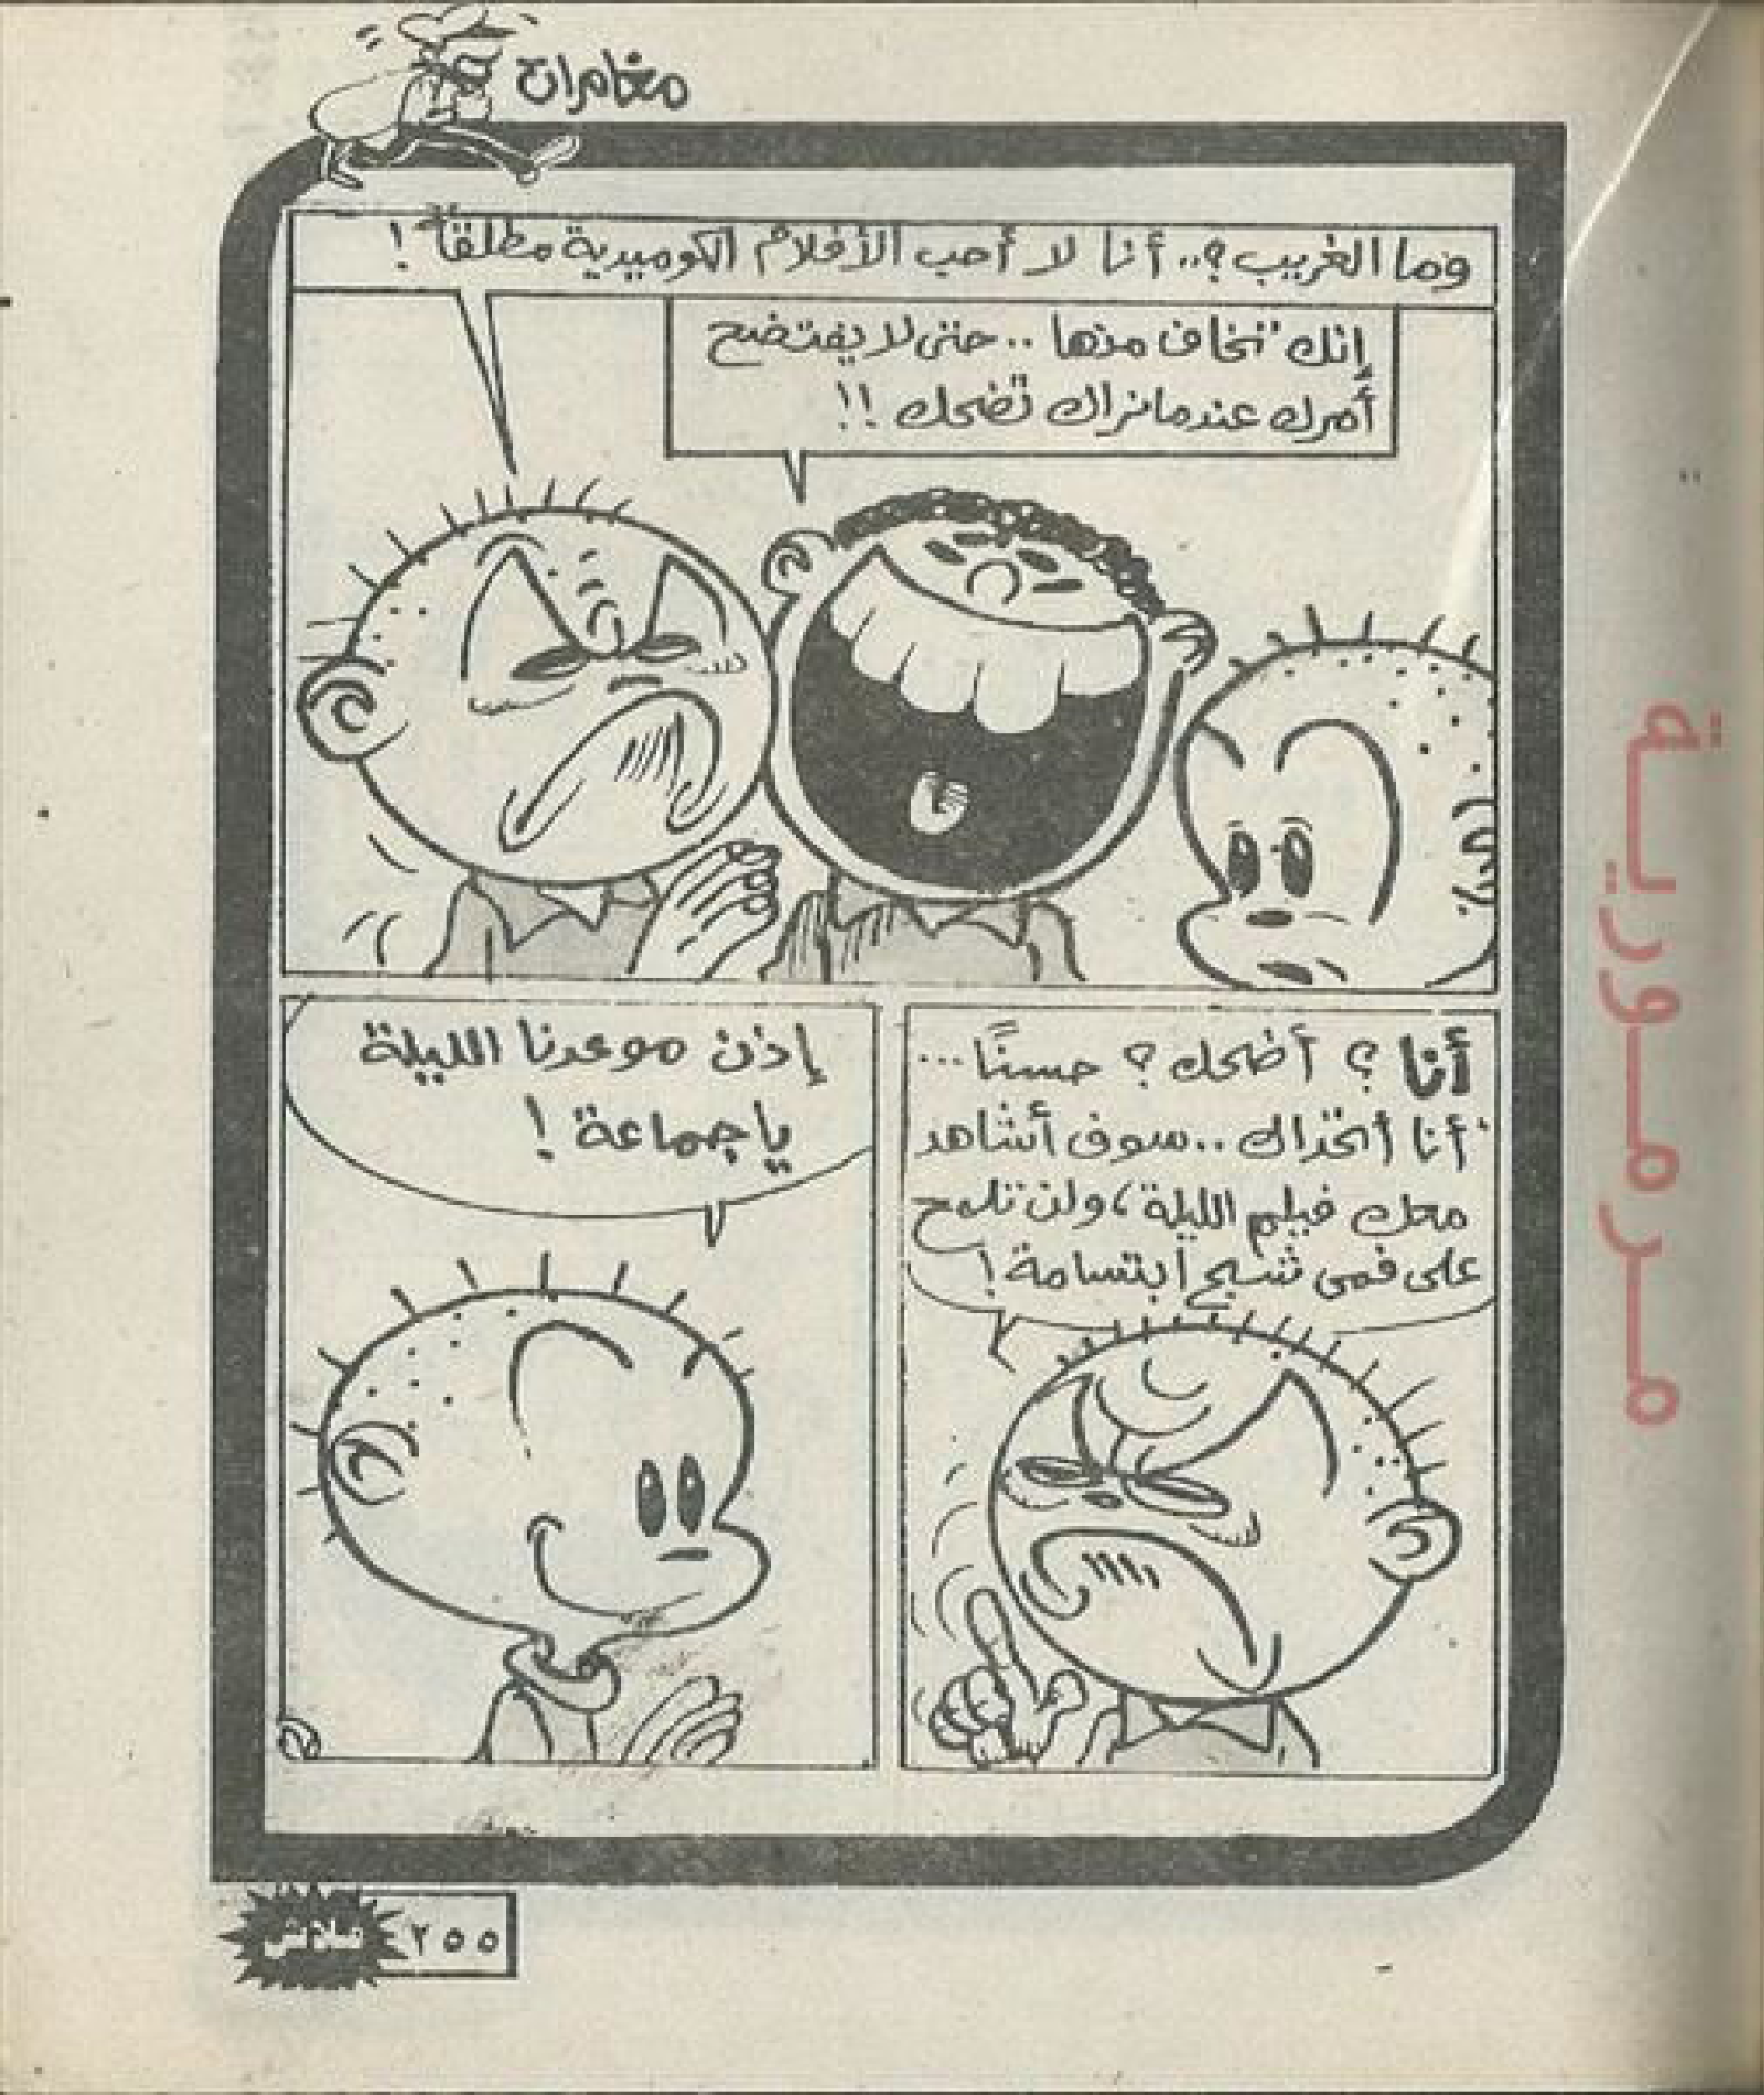 مغامرات
وما الغريب؟.. أنا لا أحب الأفلام الكوميدية مطلقاً!
إنك تخاف منها .. حتى لا يفتضح
أمرك عندما نراك تضحك !!
أنا ؟ أضحك ؟ حسنًا ...
أنا أتحداك .. سوف أشاهد
معك فيلم الليلة، ولن تلمح
على فمى شبح ابتسامة !
إذن موعدنا الليلة
يا جماعة !
فلاش
٢٥٥
مرمورية